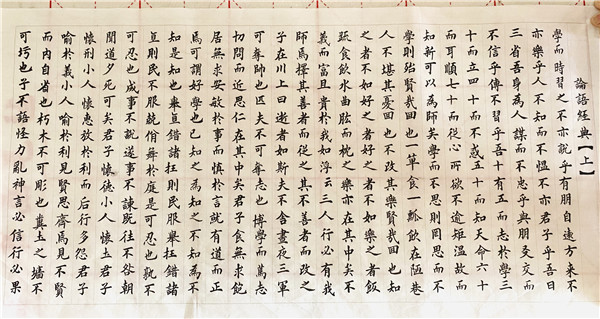 論語經典【上】
學而時習之不亦說乎有朋自遠方來不
亦樂乎人不知而不愠不亦君子乎吾日
三省吾身為人謀而不忠乎與朋友交而
不信乎傳不習乎吾十有五而志於學三
十而立四十而不惑五十而知天命六十
而耳順七十而從心所欲不逾矩溫故而
知新可以為師矣學而不思則罔思而不
學則殆賢哉回也一簞食一瓢飲在陋巷
人不堪其憂回也不改其樂賢哉回也知
之者不如好之者好之者不如樂之者飯
蔬食飲水曲肱而枕之樂亦在其中矣不
義而富且貴於我如浮云三人行必有我
師焉擇其善者而從之其不善者而改之
子在川上曰逝者如斯夫不舍晝夜三軍
可奪帥也匹夫不可奪志也博學而篤志
切問而近思仁在其中矣君子食無求飽
居無求安敏於事而慎於言就有道而正
焉可謂好學也已知之為知之不知為不
知是知也舉直錯諸枉則民服舉枉錯諸
直則民不服佾舞於庭是可忍也孰不
可忍也成事不說遂事不諫既往不咎朝
聞道夕死可矣君子懷德小人懷土君子
懷刑小人懷惠放於利而后行多怨君子
喻於義小人喻於利見賢思齊焉見不賢
而內自省也朽木不可彫也糞土之墻不
可圬也子不語怪力亂神言必信行必果